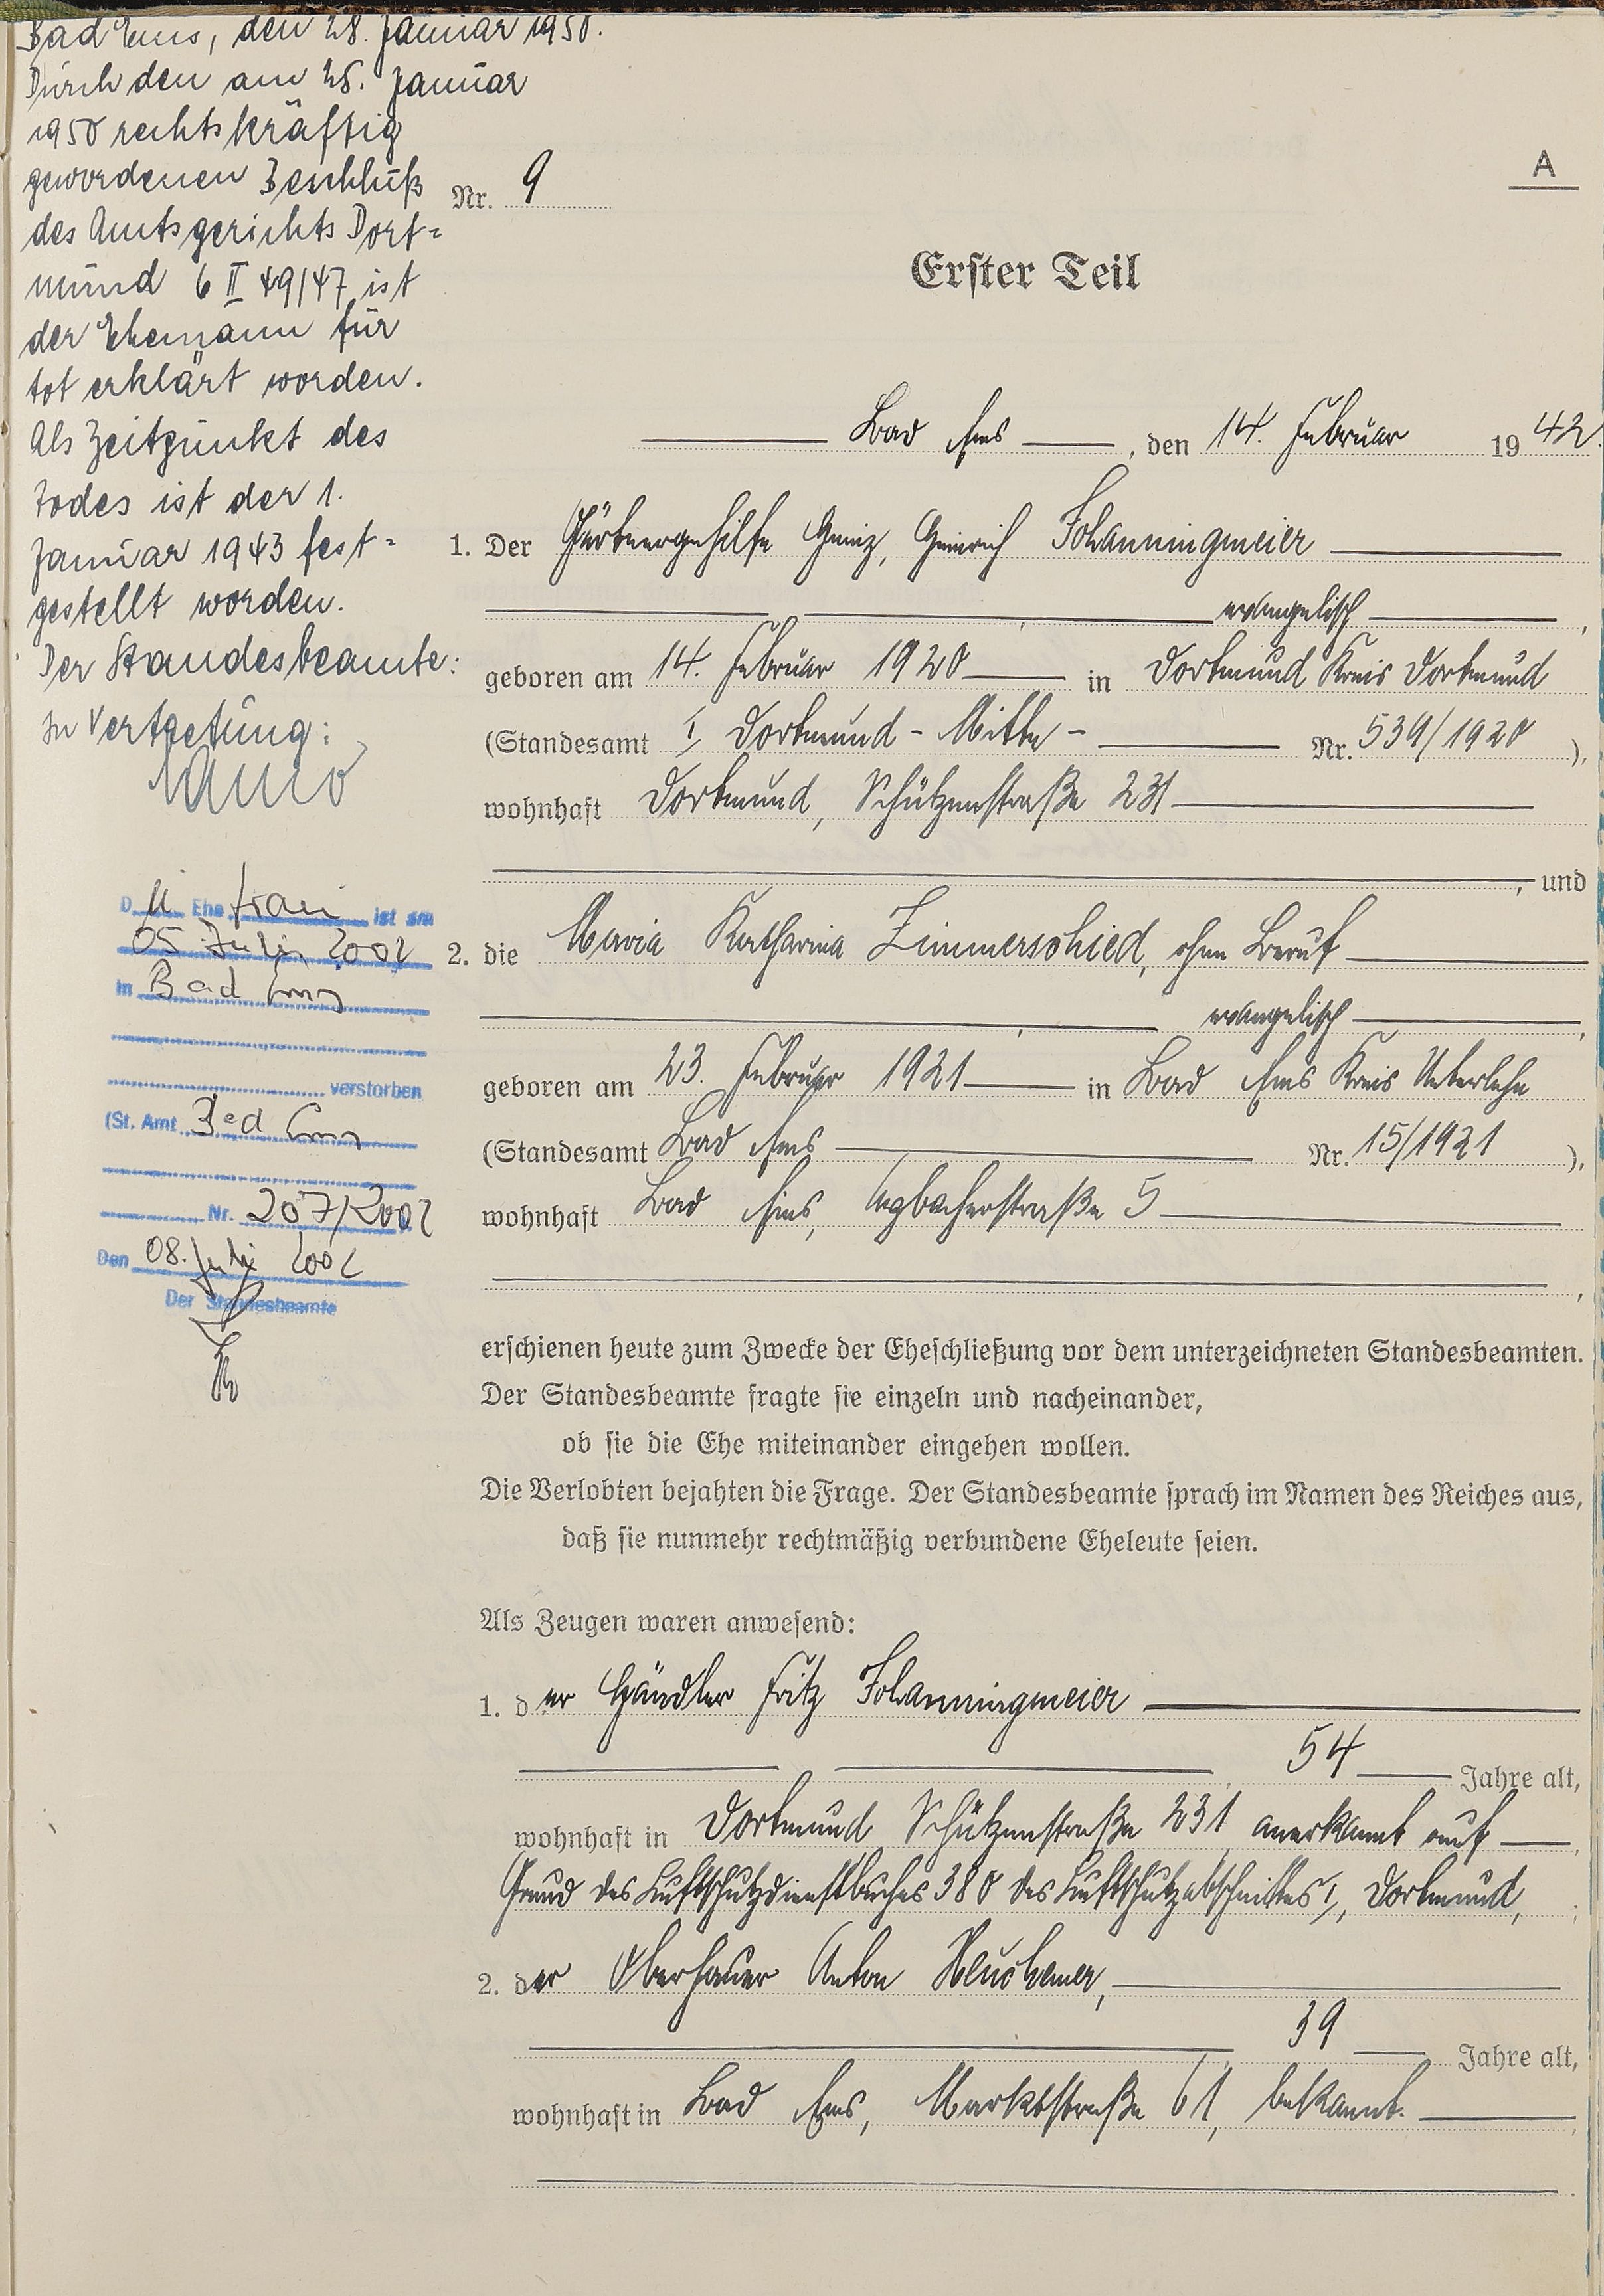 Bad Ems, den 28. Januar 1950.
Durch den am 25. Januar
1950 rechtskräftig
gewordenen Beschluß
des Amtsgerichts Dort=
mund 6 II 49/47 ist
der Ehemann für
tot erklärt worden.
Als Zeitpunkt des
Todes ist der 1.
Januar 1943 fest=
gestellt worden.
Der Standesbeamte:
In Vertretung:
Die Ehefrau ist am
05. Juli 2002
in Bad Ems
verstorben
(St. Amt Bad Ems
Nr. 207/2002
Den 08. Juli 2002
Der Standesbeamte
A
Nr. 9
Erster Teil
Bad Ems, den 14. Februar 1942.
1. Der Gärtnergehilfe Heinz, Heinrich Johanningmeier
evangelisch,
geboren am 14. Februar 1920 in Dortmund Kreis Dortmund
(Standesamt I, Dortmund - Mitte - Nr. 539/1920),
wohnhaft Dortmund, Schützenstraße 231
, und
2. die Maria Katharina Zimmerschied, ohne Beruf
evangelisch,
geboren am 23. Februar 1921 in Bad Ems Kreis Unterlahn
(Standesamt Bad Ems Nr. 15/1921),
wohnhaft Bad Ems, Arzbacherstraße 5
,
erschienen heute zum Zwecke der Eheschließung vor dem unterzeichneten Standesbeamten.
Der Standesbeamte fragte sie einzeln und nacheinander,
ob sie die Ehe miteinander eingehen wollen.
Die Verlobten bejahten die Frage. Der Standesbeamte sprach im Namen des Reiches aus,
daß sie nunmehr rechtmäßig verbundene Eheleute seien.
Als Zeugen waren anwesend:
1. der Händler Fritz Johanningmeier
54 Jahre alt,
wohnhaft in Dortmund, Schützenstraße 231, anerkannt auf
Grund des Luftschutzdienstbuches 380 des Luftschutzabschnittes I, Dortmund,
2. der Oberhauer Anton
39 Jahre alt,
wohnhaft in Bad Ems, Marktstraße 61, bekannt.